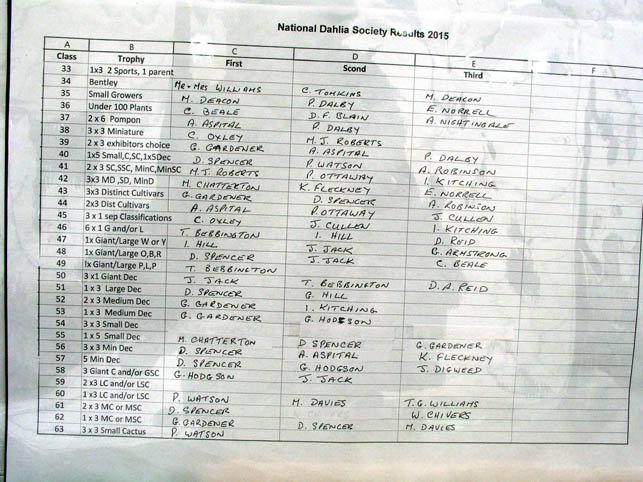 National Dahlia Society Results 2015
A B C D E F
Class Trophy First Scond Third
33 1x3 2 Sports, 1 parent
34 Bentley Mr + Mrs WILLIAMS C. TOMKINS M. DEACON
35 Small Growers M. DEACON P. DALBY E. NORRELL
36 Under 100 Plants C. BEALE D.F. BLAIN A. NIGHTINGALE
37 2 x 6 Pompon A. ASPITAL P. DALBY
38 3 x 3 Miniature C. OXLEY M.J. ROBERTS
39 2 x 3 exhibitors choice G. GARDENER A. ASPITAL P. DALBY
40 1x5 Small,C,SC,1x5Dec D. SPENCER P. WATSON A. ROBINSON
41 2 x 3 SC,SSC, MinC,MinSC M.J. ROBERTS P. OTTAWAY I. KITCHING
42 3x3 MD ,SD, MinD M. CHATTERTON K. FLECKNEY E. NORRELL
43 3x3 Distinct Cultivars G. GARDENER D. SPENCER A. ROBINION
44 2x3 Dist Cultivars A. ASPITAL P. OTTAWAY J. CULLEN
45 3 x 1 sep Classifications C. OXLEY J. CULLEN I. KITCHING
46 6 x 1 G and/or L T. BEBBINGTON I. HILL D. REID
47 1x Giant/Large W or Y I. HILL J. JACK G. ARMSTRONG
48 1x Giant/Large O,B,R D. SPENCER J. JACK C. BEALE
49 1x Giant/Large P,L,P T. BEBBINGTON
50 3 x1 Giant Dec J. JACK T. BEBBINGTON D.A. REID
51 1 x 3 Large Dec D. SPENCER G. HILL
52 2 x 3 Medium Dec G. GARDENER I. KITCHING
53 1 x 3 Medium Dec G. GARDENER G. HODGSON
54 3 x 3 Small Dec
55 1 x 5 Small Dec M. CHATTERTON D SPENCER G. GARDENER
56 3 x 3 Min Dec D. SPENCER A. ASPITAL K. FLECKNEY
57 5 Min Dec D. SPENCER G. HODGSON J. DIGWEED
58 3 Giant C and/or GSC G. HODGSON J. JACK
59 2 x3 LC and/or LSC
60 1x3 LC and/or LSC P. WATSON M. DAVIES T.G. WILLIAMS
61 2 x 3 MC or MSC D. SPENCER W. CHIVERS
62 1 x 3 MC or MSC G. GARDENER D. SPENCER M. DAVIES
63 3 x 3 Small Cactus P. WATSON